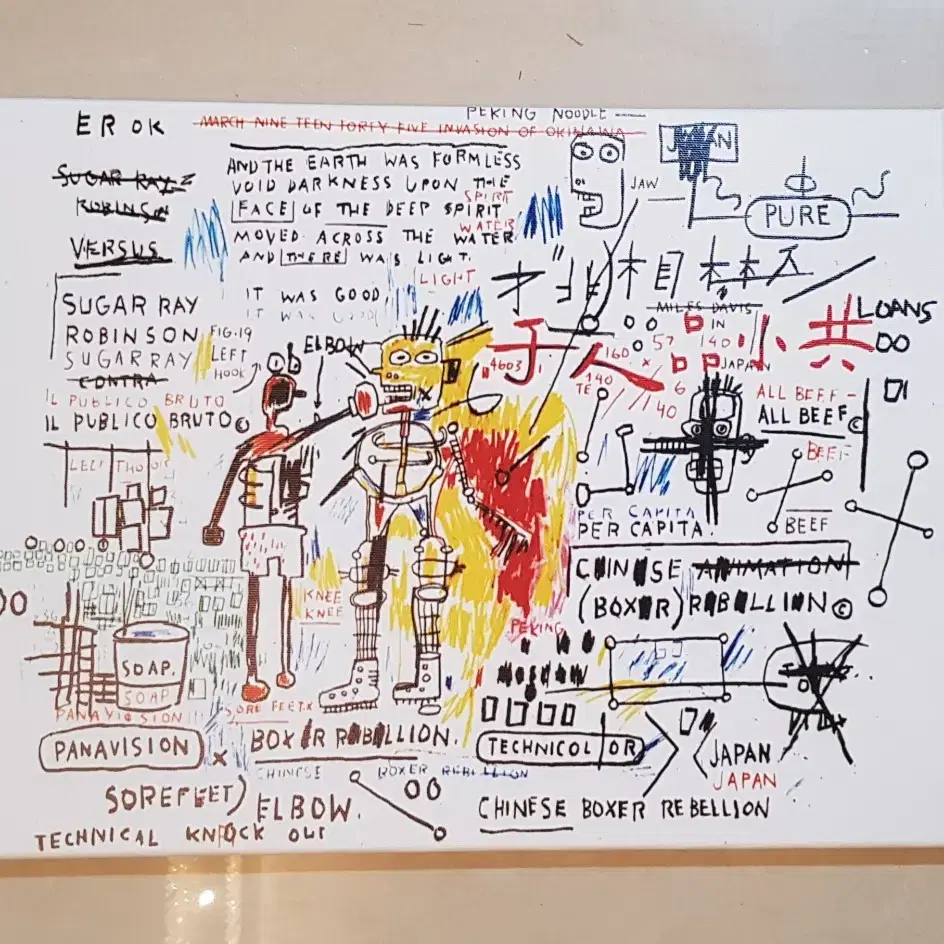 PEKING NOODLE
EROK
MARCH NINE TEEN FORTY FIVE INVASION OF OKINAWA
SUGAR RAY
ROBINSON
VERSUS
AND THE EARTH WAS FORMLESS
VOID DARKNESS UPON THE
SPIRIT
FACE OF THE DEEP SPIRIT
WATER
MOVED ACROSS THE WATER
AND THERE WAS LIGHT.
LIGHT
IT WAS GOOD,
IT WAS GOOD
JAW
JAPAN
PURE
SUGAR RAY
ROBINSON
SUGAR RAY
CONTRA
IL PUBLICO BRUTO
IL PUBLICO BRUTO©
FIG.19
LEFT
HOOK
ELBOW
MILES DAVIS
LOANS
IN
57
140
160
JAPAN
4603
140
TE
6
40
小
共
人
ALL BEEF-
ALL BEEF©
BEEF
BEEF
PER CAPITA
PER CAPITA.
CHINESE ANIMATION
(BOXER) REBELLION©
PEKING
KNEE
KNEE
SOAP.
SOAP
PANAVISION
PANAVISION
SORE FEET
BOXER REBELLION.
CHINESE BOXER REBELLION
TECHNICOLOR
JAPAN
JAPAN
SOREFEET)
ELBOW.
TECHNICAL KNOCK OUT
CHINESE BOXER REBELLION